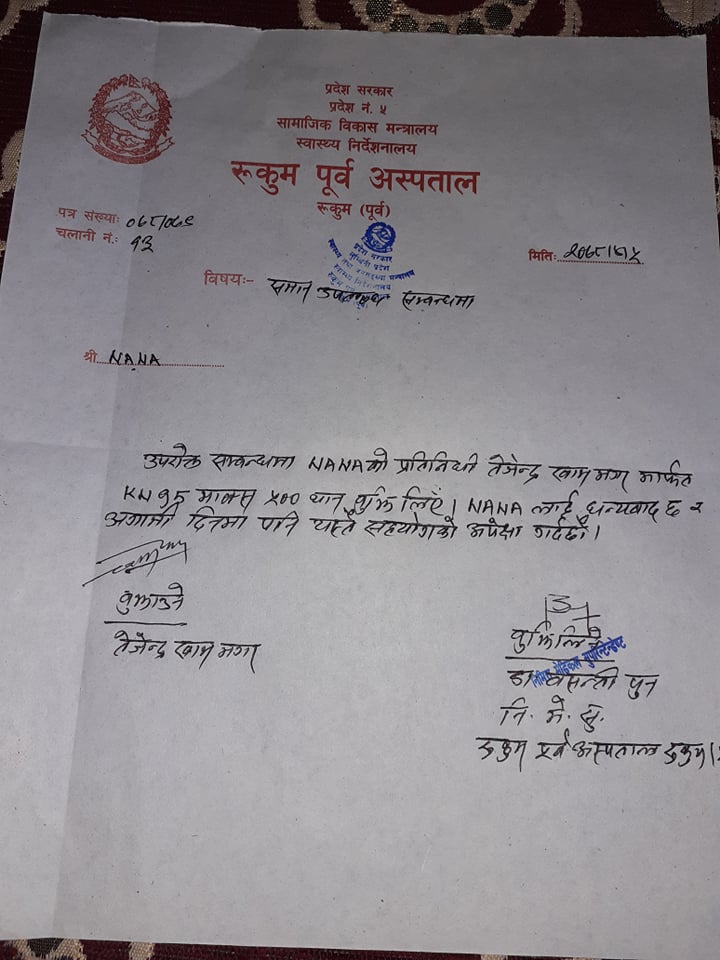 प्रदेश सरकार
प्रदेश नं. ५
सामाजिक विकास मन्त्रालय
स्वास्थ्य निर्देशनालय
रूकुम पूर्व अस्पताल
रूकुम (पूर्व)
पत्र संख्याः ०७८/०७९
चलानी नं.: १३
मितिः
विषयः- सम्बन्धमा
श्री NANA
उपरोक्त सम्बन्धमा NANA को प्रतिनिधी तेजेन्द्र खाम मगर मार्फत
KN95 मास्क ५०० थान बुझि लिएँ। NANA लाई धन्यवाद छ र
अगामी दिनमा पनि यस्तै सहयोगको अपेक्षा गर्दछौं।
बुझाउने
तेजेन्द्र खाम मगर
बुझिलिने
निमित्त मेडिकल सुपरिटेन्डेण्ट
डा बसन्ती पुन
नि. मे. सु.
रुकुम पूर्व अस्पताल रुकुम